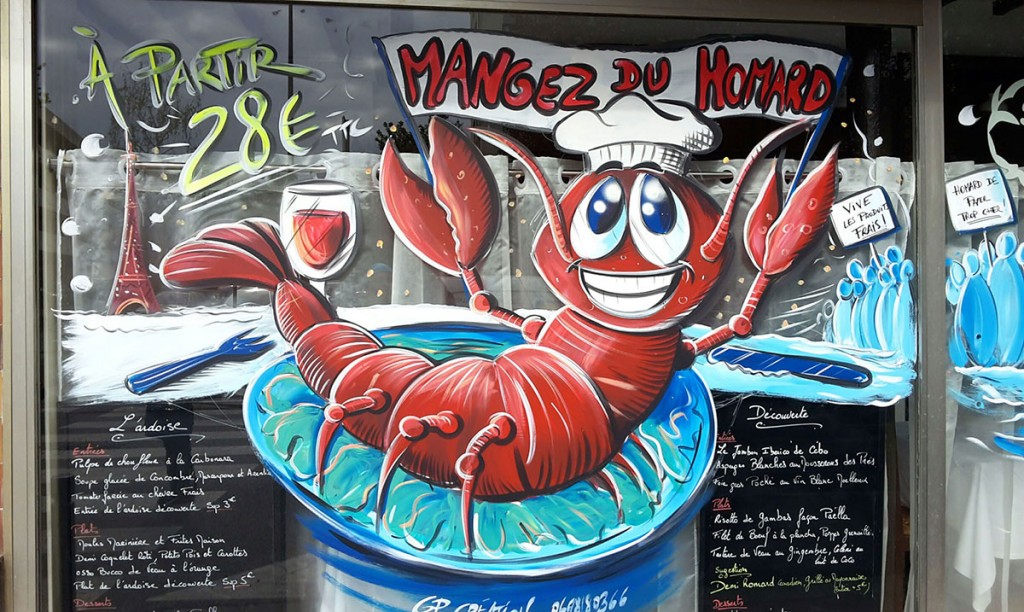 À PARTIR
28€ TTC
MANGEZ DU HOMARD
VIVE
LES PRODUITS
FRAIS!
HOMARD DE
PAPIER
TROP CHER!
L'ardoise
Entrées
Pulpe de chou fleur à la Carbonara
Soupe glacée de Concombre, et
Tomate farcie au chèvre Frais
Entrée de l'ardoise découverte Sup 3€
Plat
Moules Marinière et Frites Maison
Demi Coquelet Rôti, Petits Pois et Carottes
Osso Bucco de Veau à l'orange
Plat de l'ardoise découverte Sup 5€
Desserts
Découverte
Le Jambon Iberico de Cebo
Asperges Blanches au Mousserons des Prés
Foie gras Poché au Vin Blanc
Plats
Risotto de Gambas façon Paëlla
Filet de Boeuf à la plancha, Grenaille,
Tartare de Veau au Gingembre,
Lait de Coco
Suggestion
Demi Homard Canadien Grillé
Desserts
GP CREATION